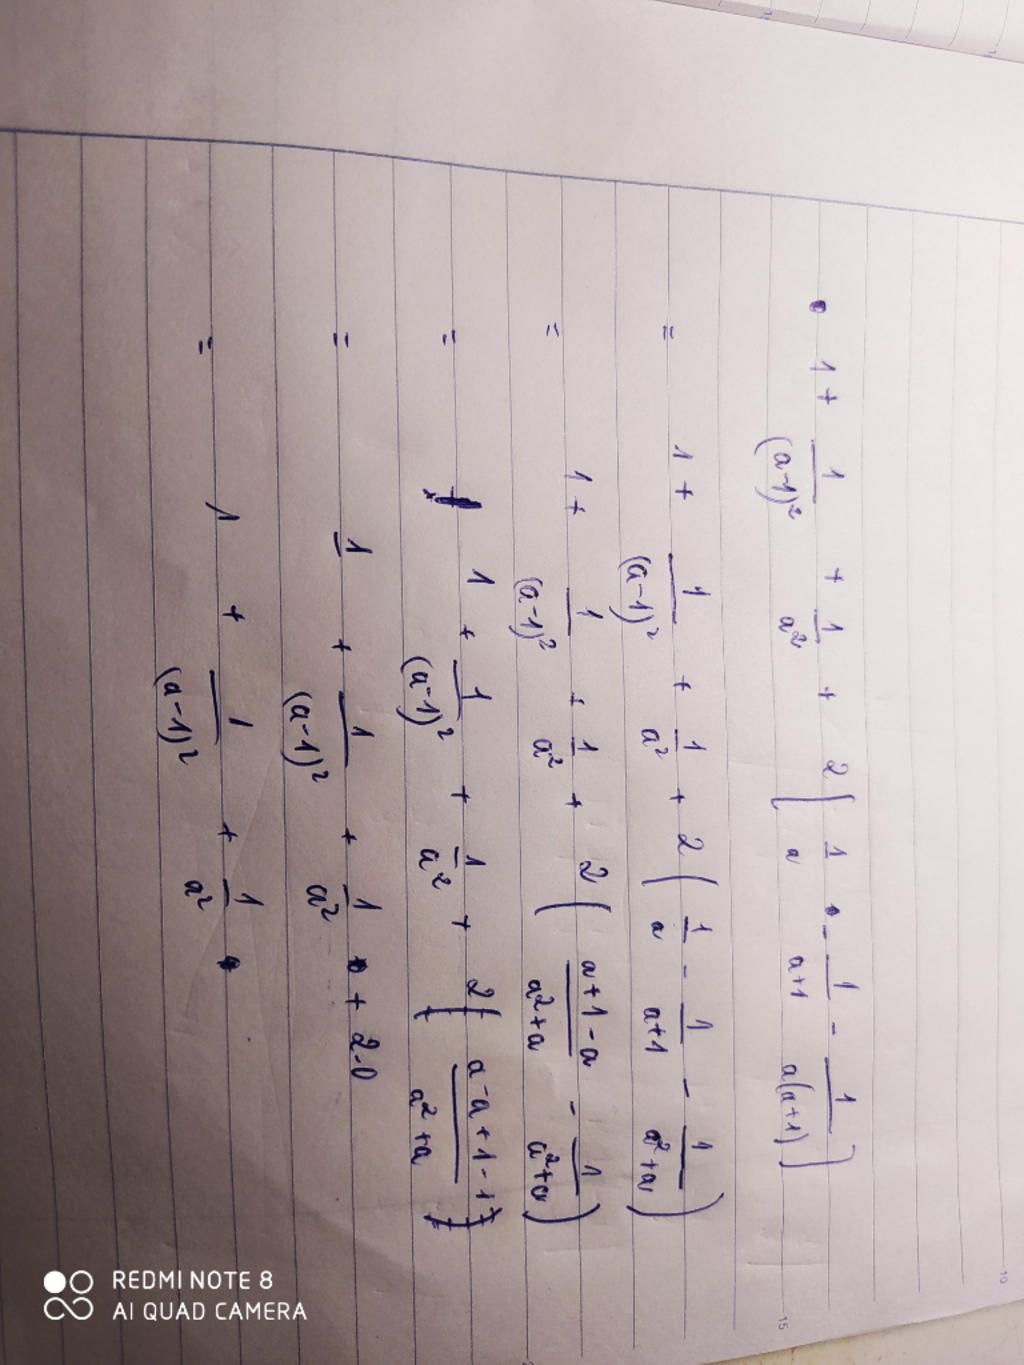 • 1 + 1/(a-1)² + 1/a² + 2(1/a - 1/a+1 - 1/a(a+1))
= 1 + 1/(a-1)² + 1/a² + 2(1/a - 1/a+1 - 1/a²+a)
= 1 + 1/(a-1)² + 1/a² + 2(a+1-a/a²+a - 1/a²+a)
= 1 + 1/(a-1)² + 1/a² + 2(a-a+1-1/a²+a)
= 1 + 1/(a-1)² + 1/a² + 2.0
= 1 + 1/(a-1)² + 1/a²
REDMI NOTE 8
AI QUAD CAMERA
15
10